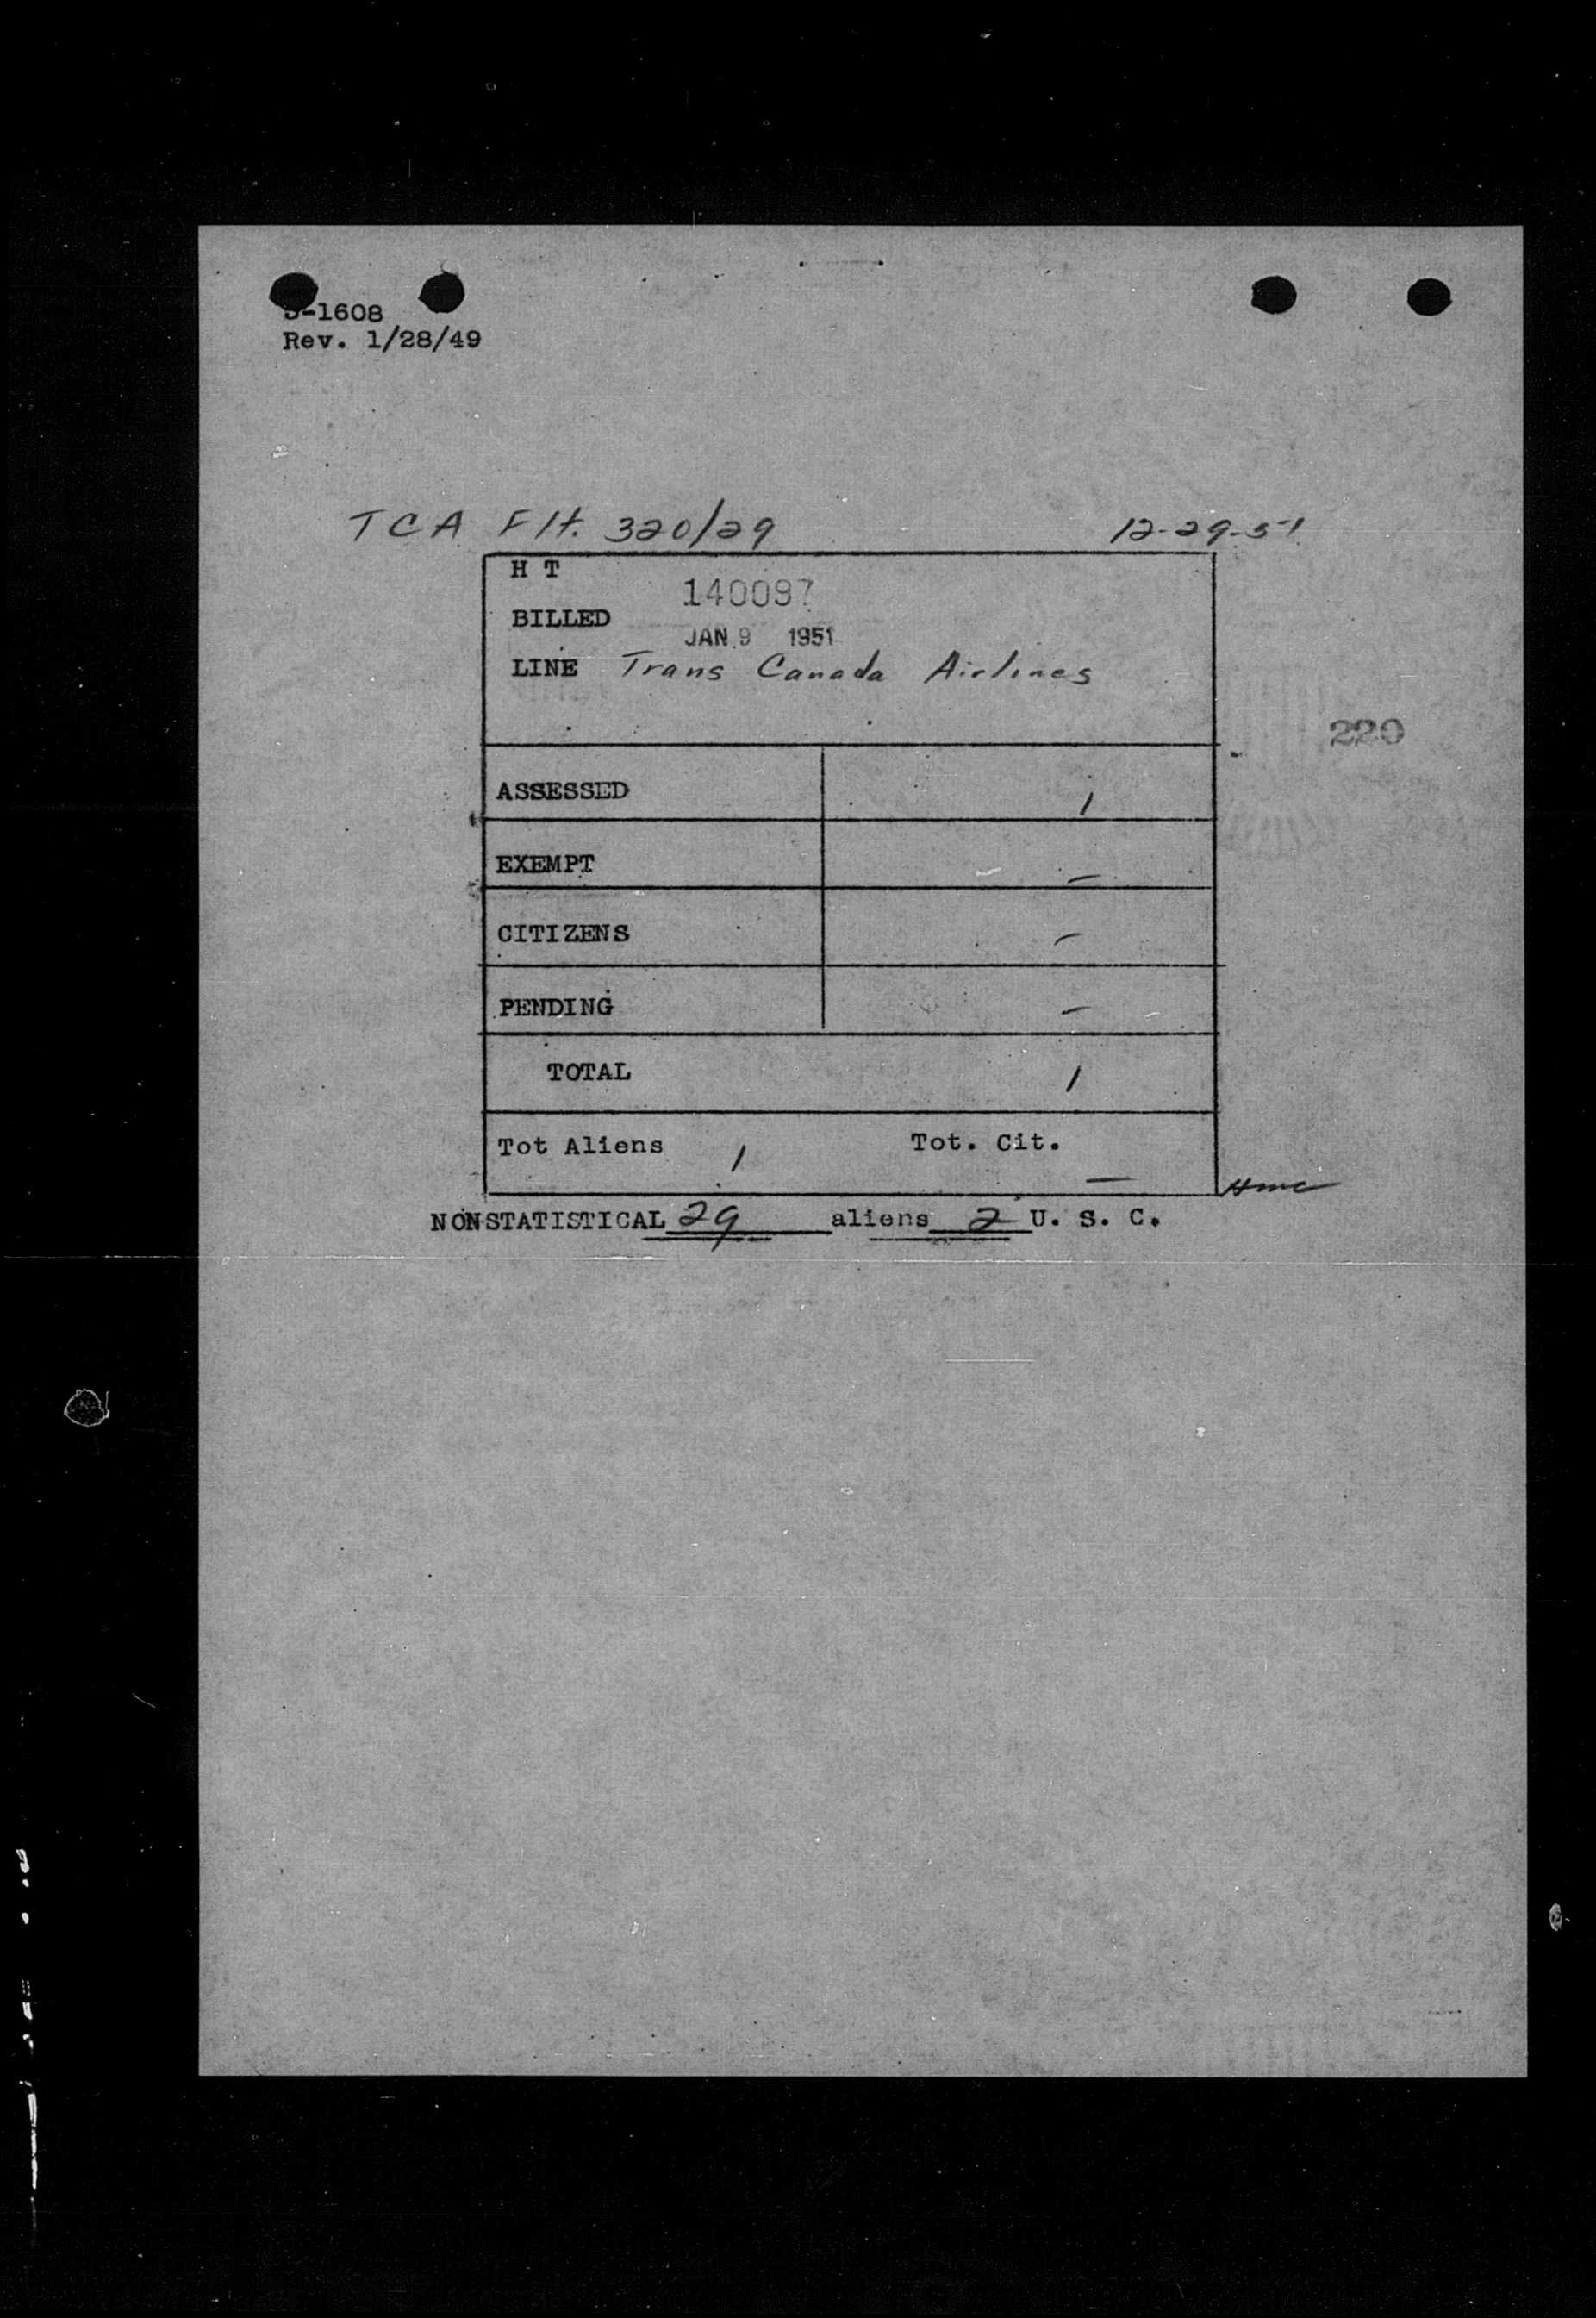 -1608
Rev. 1/28/49
TCA Flt. 320/29 12-29-51
H T
140097
BILLED
JAN 9 1951
LINE Trans Canada Airlines
220
ASSESSED 1
EXEMPT —
CITIZENS —
PENDING —
TOTAL 1
Tot Aliens 1 Tot. Cit. —
NONSTATISTICAL 29 aliens 2 U. S. C.